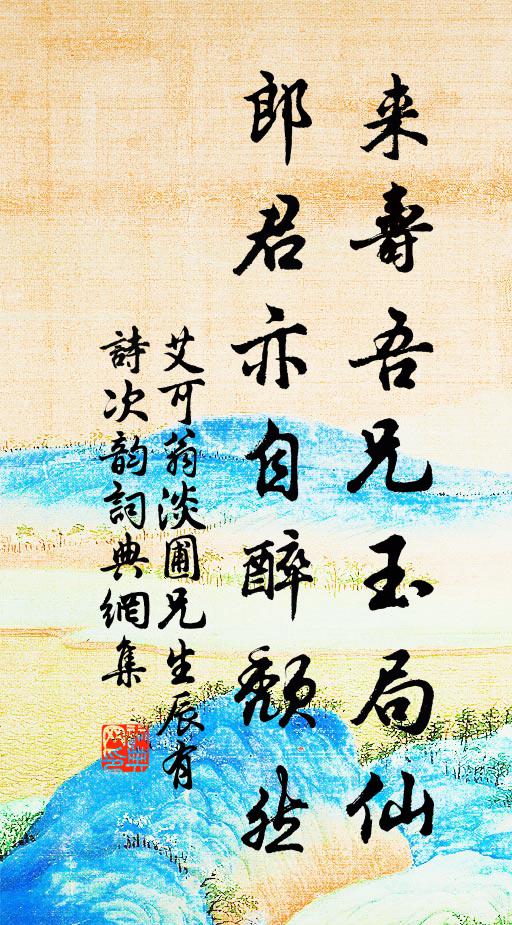 来壽吾兄玉局仙
郎君亦自醉頽然
艾可翁淡圃兄生辰有
詩次韵詞典網集